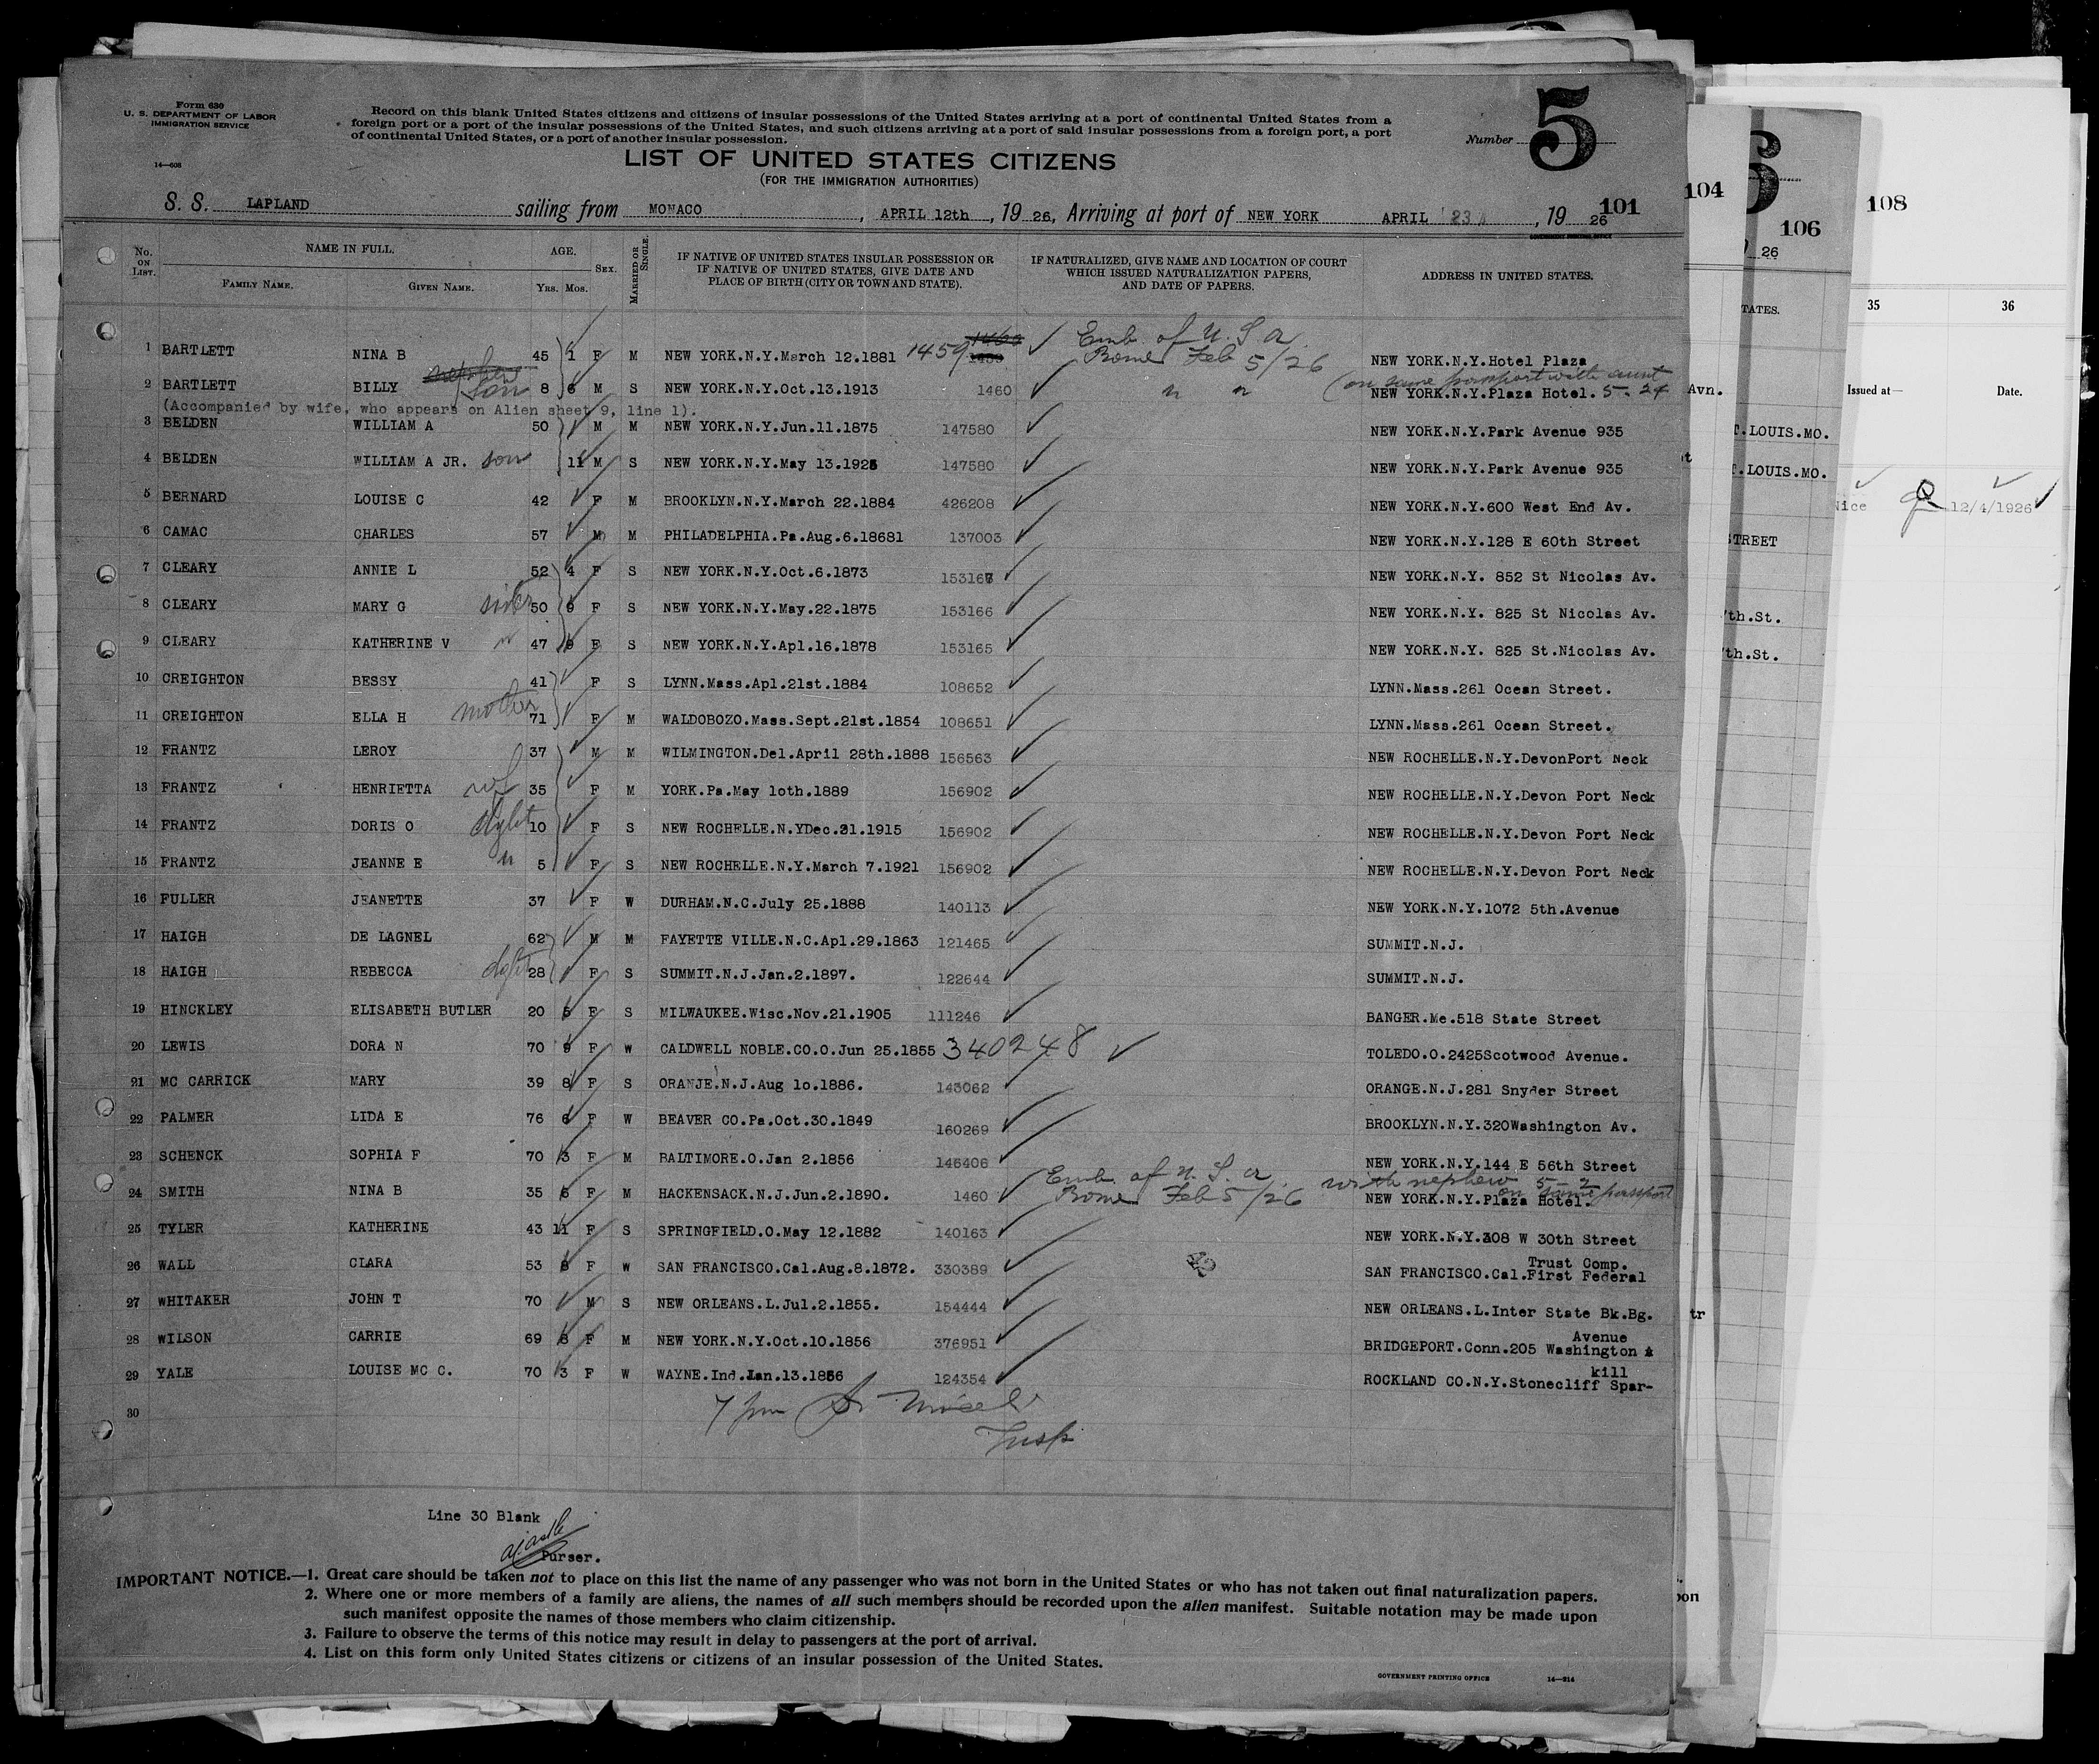 Form 630
U. S. DEPARTMENT OF LABOR
IMMIGRATION SERVICE
14—608
Record on this blank United States citizens and citizens of insular possessions of the United States arriving at a port of continental United States from a
foreign port or a port of the insular possessions of the United States, and such citizens arriving at a port of said insular possessions from a foreign port, a port
of continental United States, or a port of another insular possession.
Number 5
LIST OF UNITED STATES CITIZENS
(FOR THE IMMIGRATION AUTHORITIES)
S. S. LAPLAND sailing from MONACO, APRIL 12th, 1926, Arriving at port of NEW YORK APRIL 23, 1926 101
GOVERNMENT PRINTING OFFICE
No. ON LIST. NAME IN FULL. FAMILY NAME. GIVEN NAME. AGE. Yrs. Mos. SEX. MARRIED OR SINGLE. IF NATIVE OF UNITED STATES INSULAR POSSESSION OR IF NATIVE OF UNITED STATES, GIVE DATE AND PLACE OF BIRTH (CITY OR TOWN AND STATE). IF NATURALIZED, GIVE NAME AND LOCATION OF COURT WHICH ISSUED NATURALIZATION PAPERS, AND DATE OF PAPERS. ADDRESS IN UNITED STATES.
1 BARTLETT NINA B 45 1 F M NEW YORK.N.Y.March 12.1881 1459 Emb. of U.S.A. Rome Feb 5/26 NEW YORK.N.Y.Hotel Plaza
2 BARTLETT BILLY nephew son 8 6 M S NEW YORK.N.Y.Oct.13.1913 1460 " " (on same passport with aunt 5-24 NEW YORK.N.Y.Plaza Hotel.
(Accompanied by wife, who appears on Alien sheet 9, line 1).
3 BELDEN WILLIAM A 50 M M NEW YORK.N.Y.Jun.11.1875 147580 NEW YORK.N.Y.Park Avenue 935
4 BELDEN WILLIAM A JR. son 11 M S NEW YORK.N.Y.May 13.1925 147580 NEW YORK.N.Y.Park Avenue 935
5 BERNARD LOUISE C 42 F M BROOKLYN.N.Y.March 22.1884 426208 NEW YORK.N.Y.600 West End Av.
6 CAMAC CHARLES 57 M M PHILADELPHIA.Pa.Aug.6.18681 137003 NEW YORK.N.Y.128 E 60th Street
7 CLEARY ANNIE L 52 4 F S NEW YORK.N.Y.Oct.6.1873 153167 NEW YORK.N.Y. 852 St Nicolas Av.
8 CLEARY MARY G sister 50 9 F S NEW YORK.N.Y.May.22.1875 153166 NEW YORK.N.Y. 825 St Nicolas Av.
9 CLEARY KATHERINE V " 47 9 F S NEW YORK.N.Y.Apl.16.1878 153165 NEW YORK.N.Y. 825 St.Nicolas Av.
10 CREIGHTON BESSY 41 F S LYNN.Mass.Apl.21st.1884 108652 LYNN.Mass.261 Ocean Street.
11 CREIGHTON ELLA H mother 71 F M WALDOBOZO.Mass.Sept.21st.1854 108651 LYNN.Mass.261 Ocean Street.
12 FRANTZ LEROY 37 M M WILMINGTON.Del.April 28th.1888 156563 NEW ROCHELLE.N.Y.DevonPort Neck
13 FRANTZ HENRIETTA wf 35 F M YORK.Pa.May 1oth.1889 156902 NEW ROCHELLE.N.Y.Devon Port Neck
14 FRANTZ DORIS O dght 10 F S NEW ROCHELLE.N.YDec.31.1915 156902 NEW ROCHELLE.N.Y.Devon Port Neck
15 FRANTZ JEANNE E " 5 F S NEW ROCHELLE.N.Y.March 7.1921 156902 NEW ROCHELLE.N.Y.Devon Port Neck
16 FULLER JEANETTE 37 F W DURHAM.N.C.July 25.1888 140113 NEW YORK.N.Y.1072 5th.Avenue
17 HAIGH DE LAGNEL 62 M M FAYETTE VILLE.N.C.Apl.29.1863 121465 SUMMIT.N.J.
18 HAIGH REBECCA dght 28 F S SUMMIT.N.J.Jan.2.1897. 122644 SUMMIT.N.J.
19 HINCKLEY ELISABETH BUTLER 20 5 F S MILWAUKEE.Wisc.Nov.21.1905 111246 BANGER.Me.518 State Street
20 LEWIS DORA N 70 9 F W CALDWELL NOBLE.CO.O.Jun 25.1855 340248 TOLEDO.O.2425Scotwood Avenue.
21 MC CARRICK MARY 39 8 F S ORANJE.N.J.Aug 1o.1886. 143062 ORANGE.N.J.281 Snyder Street
22 PALMER LIDA E 76 6 F W BEAVER CO.Pa.Oct.30.1849 160269 BROOKLYN.N.Y.320Washington Av.
23 SCHENCK SOPHIA F 70 3 F M BALTIMORE.O.Jan 2.1856 146406 NEW YORK.N.Y.144 E 56th Street
24 SMITH NINA B 35 6 F M HACKENSACK.N.J.Jun.2.1890. 1460 Emb. of U.S.A. Rome Feb 5/26 with nephew 5-2 on same passport NEW YORK.N.Y.Plaza Hotel.
25 TYLER KATHERINE 43 11 F S SPRINGFIELD.O.May 12.1882 140163 NEW YORK.N.Y.308 W 30th Street
26 WALL CLARA 53 8 F W SAN FRANCISCO.Cal.Aug.8.1872. 330389 Trust Comp. SAN FRANCISCO.Cal.First Federal
27 WHITAKER JOHN T 70 M S NEW ORLEANS.L.Jul.2.1855. 154444 NEW ORLEANS.L.Inter State Bk.Bg.
28 WILSON CARRIE 69 8 F M NEW YORK.N.Y.Oct.10.1856 376951 Avenue BRIDGEPORT.Conn.205 Washington
29 YALE LOUISE MC C. 70 3 F W WAYNE.Ind.Jan.13.1856 124354 kill ROCKLAND CO.N.Y.Stonecliff Spar-
30
Insp
Line 30 Blank
Purser.
IMPORTANT NOTICE.—1. Great care should be taken not to place on this list the name of any passenger who was not born in the United States or who has not taken out final naturalization papers.
2. Where one or more members of a family are aliens, the names of all such members should be recorded upon the alien manifest. Suitable notation may be made upon
such manifest opposite the names of those members who claim citizenship.
3. Failure to observe the terms of this notice may result in delay to passengers at the port of arrival.
4. List on this form only United States citizens or citizens of an insular possession of the United States.
GOVERNMENT PRINTING OFFICE 14—214
104
Avn.
tr
6
106
26
TATES.
T.LOUIS.MO.
T.LOUIS.MO.
STREET
7th.St.
7th.St.
108
35 36
Issued at— Date.
Nice 12/4/1926